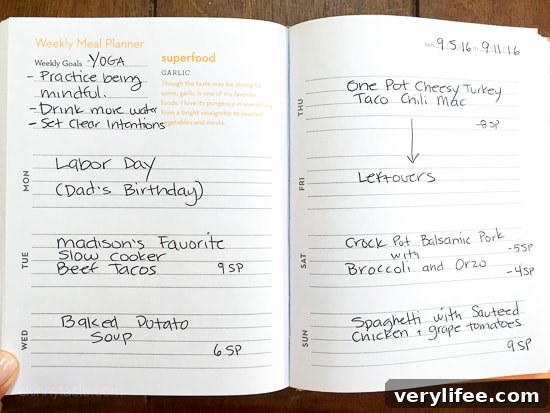 Weekly Meal Planner
Weekly Goals :YOGA
- Practice being
mindful.
- Drink more water
- Set Clear Intentions
superfood
GARLIC
Though the taste may be strong for
some, garlic is one of my favorite
foods. I love its pungency in everything
from a bright vinaigrette to roasted
vegetables and meats.
MON
Labor Day
(Dad's Birthday)
TUE
madison's Favorite
Slow cooker
Beef Tacos 9 SP
WED
Baked Potato
Soup
6 SP
9.5.16 to 9.11.16
THU
One Pot Cheesy Turkey
Taco Chili Mac
-8SP
FRI
Leftovers
SAT
Crock Pot Balsamic Pork
with -5SP
Broccoli and Orzo -4SP
SUN
Spaghetti with Sauteed
Chicken + grape tomatoes
9 SP
verylifee.com